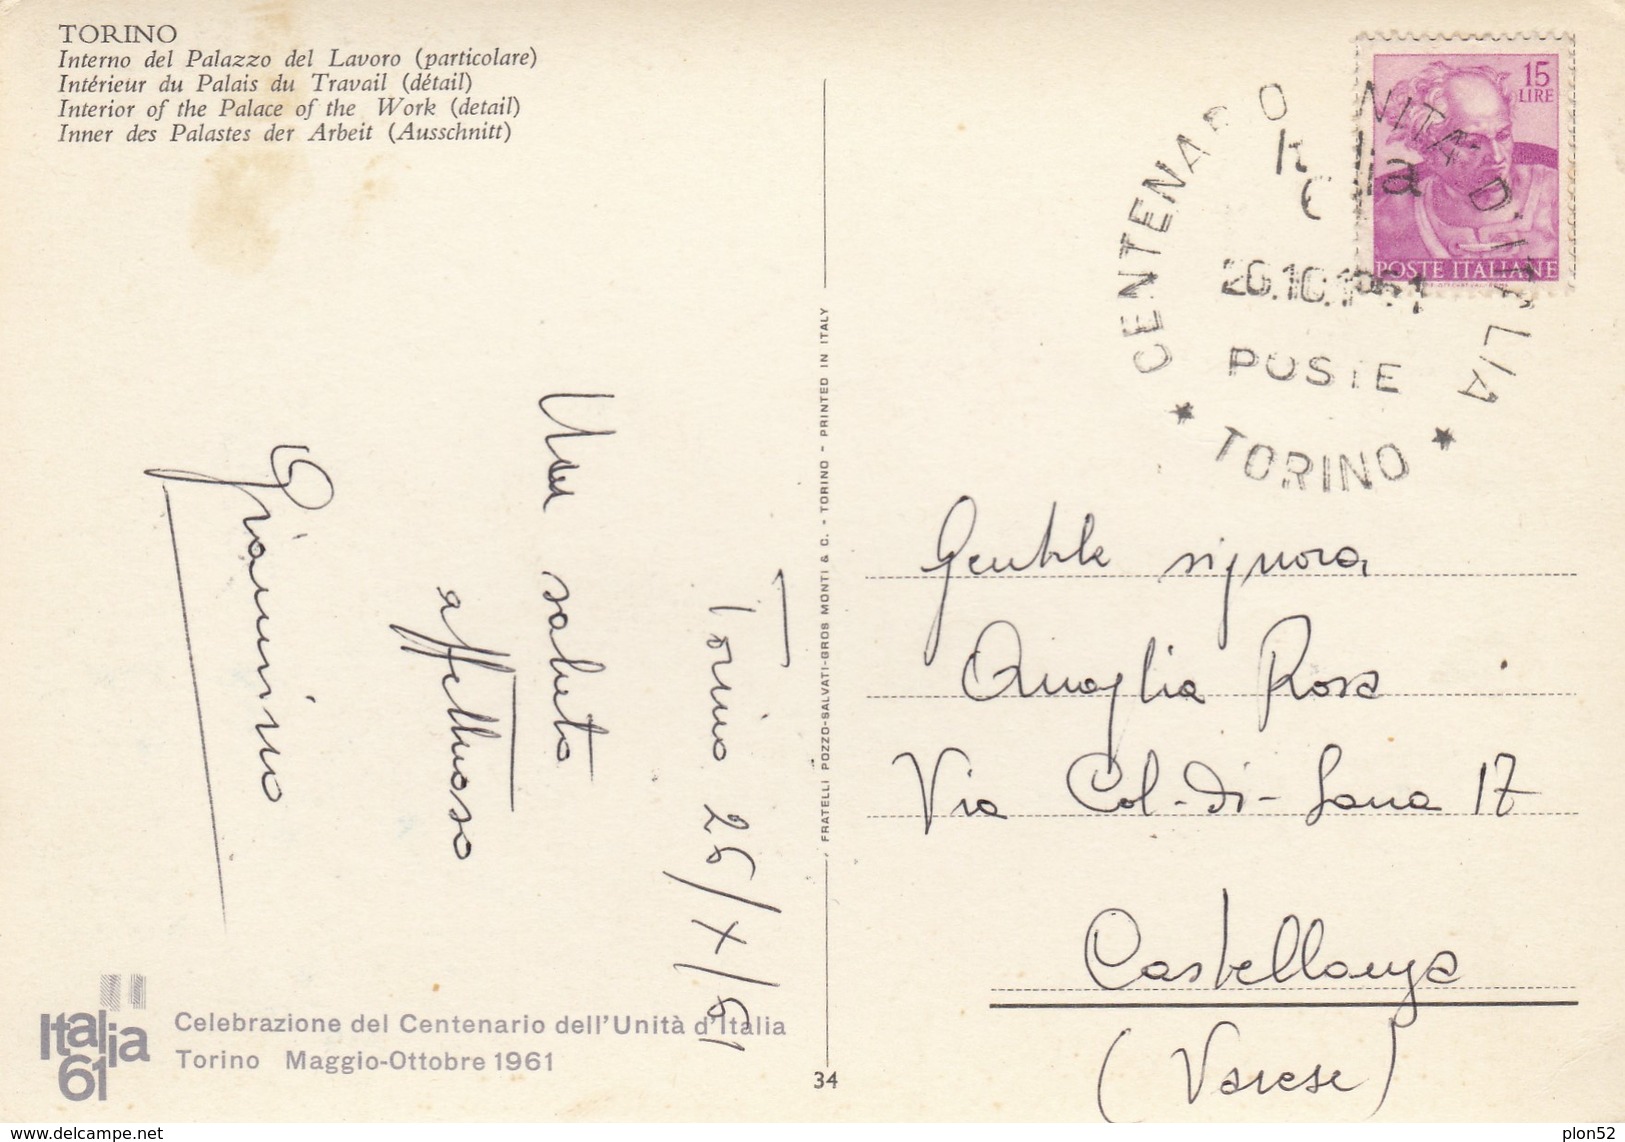 TORINO
Interno del Palazzo del Lavoro (particolare)
Intérieur du Palais du Travail (détail)
Interior of the Palace of the Work (detail)
Inner des Palastes der Arbeit (Ausschnitt)
15
LIRE
POSTE ITALIANE
CENTENARIO UNITA D'ITALIA
Italia
6
26.10.1961
POSTE
* TORINO *
Torino 26/X/61
Un saluto
affettuoso
Giannino
FRATELLI POZZO-SALVATI-GROS MONTI & C. - TORINO - PRINTED IN ITALY
Gentile signora
Quaglia Rosa
Via Col-di-Lana 17
Castellanza
(Varese)
Italia
61
Celebrazione del Centenario dell'Unità d'Italia
Torino Maggio-Ottobre 1961
34
https://www.delcampe.net
plon52